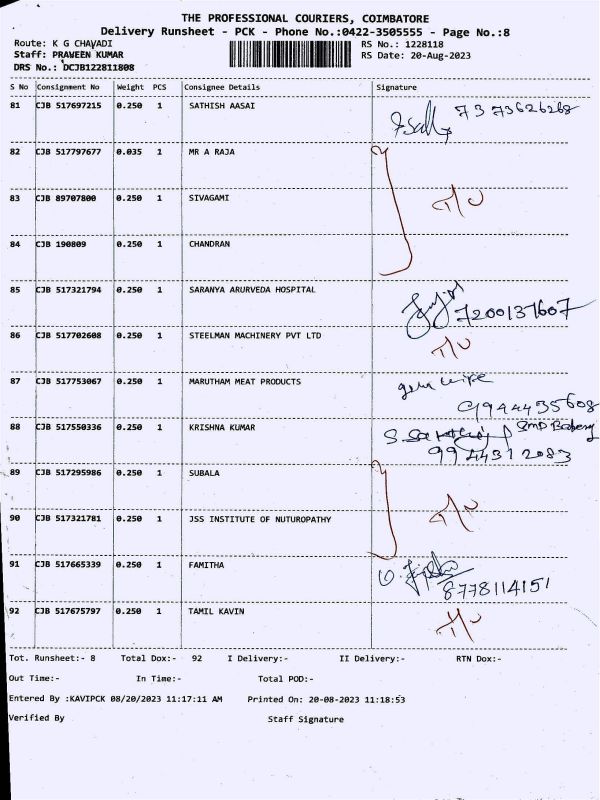 THE PROFESSIONAL COURIERS, COIMBATORE
Delivery Runsheet - PCK - Phone No.:0422-3505555 - Page No.:8
Route: K G CHAVADI
RS No.: 1228118
Staff: PRAVEEN KUMAR
RS Date: 20-Aug-2023
DRS No.: DCJB122811808
S No Consignment No Weight PCS Consignee Details Signature
81 CJB 517697215 0.250 1 SATHISH AASAI 7373626268
82 CJB 517797677 0.035 1 MR A RAJA
83 CJB 89707800 0.250 1 SIVAGAMI
84 CJB 190809 0.250 1 CHANDRAN
85 CJB 517321794 0.250 1 SARANYA ARURVEDA HOSPITAL 7200137607
86 CJB 517702608 0.250 1 STEELMAN MACHINERY PVT LTD
87 CJB 517753067 0.250 1 MARUTHAM MEAT PRODUCTS
9944435608
88 CJB 517550336 0.250 1 KRISHNA KUMAR
9944312083
89 CJB 517295986 0.250 1 SUBALA
90 CJB 517321781 0.250 1 JSS INSTITUTE OF NUTUROPATHY
91 CJB 517665339 0.250 1 FAMITHA
8778114151
92 CJB 517675797 0.250 1 TAMIL KAVIN
Tot. Runsheet:- 8 Total Dox:- 92 I Delivery:- II Delivery:- RTN Dox:-
Out Time:- In Time:- Total POD:-
Entered By :KAVIPCK 08/20/2023 11:17:11 AM Printed On: 20-08-2023 11:18:53
Verified By Staff Signature